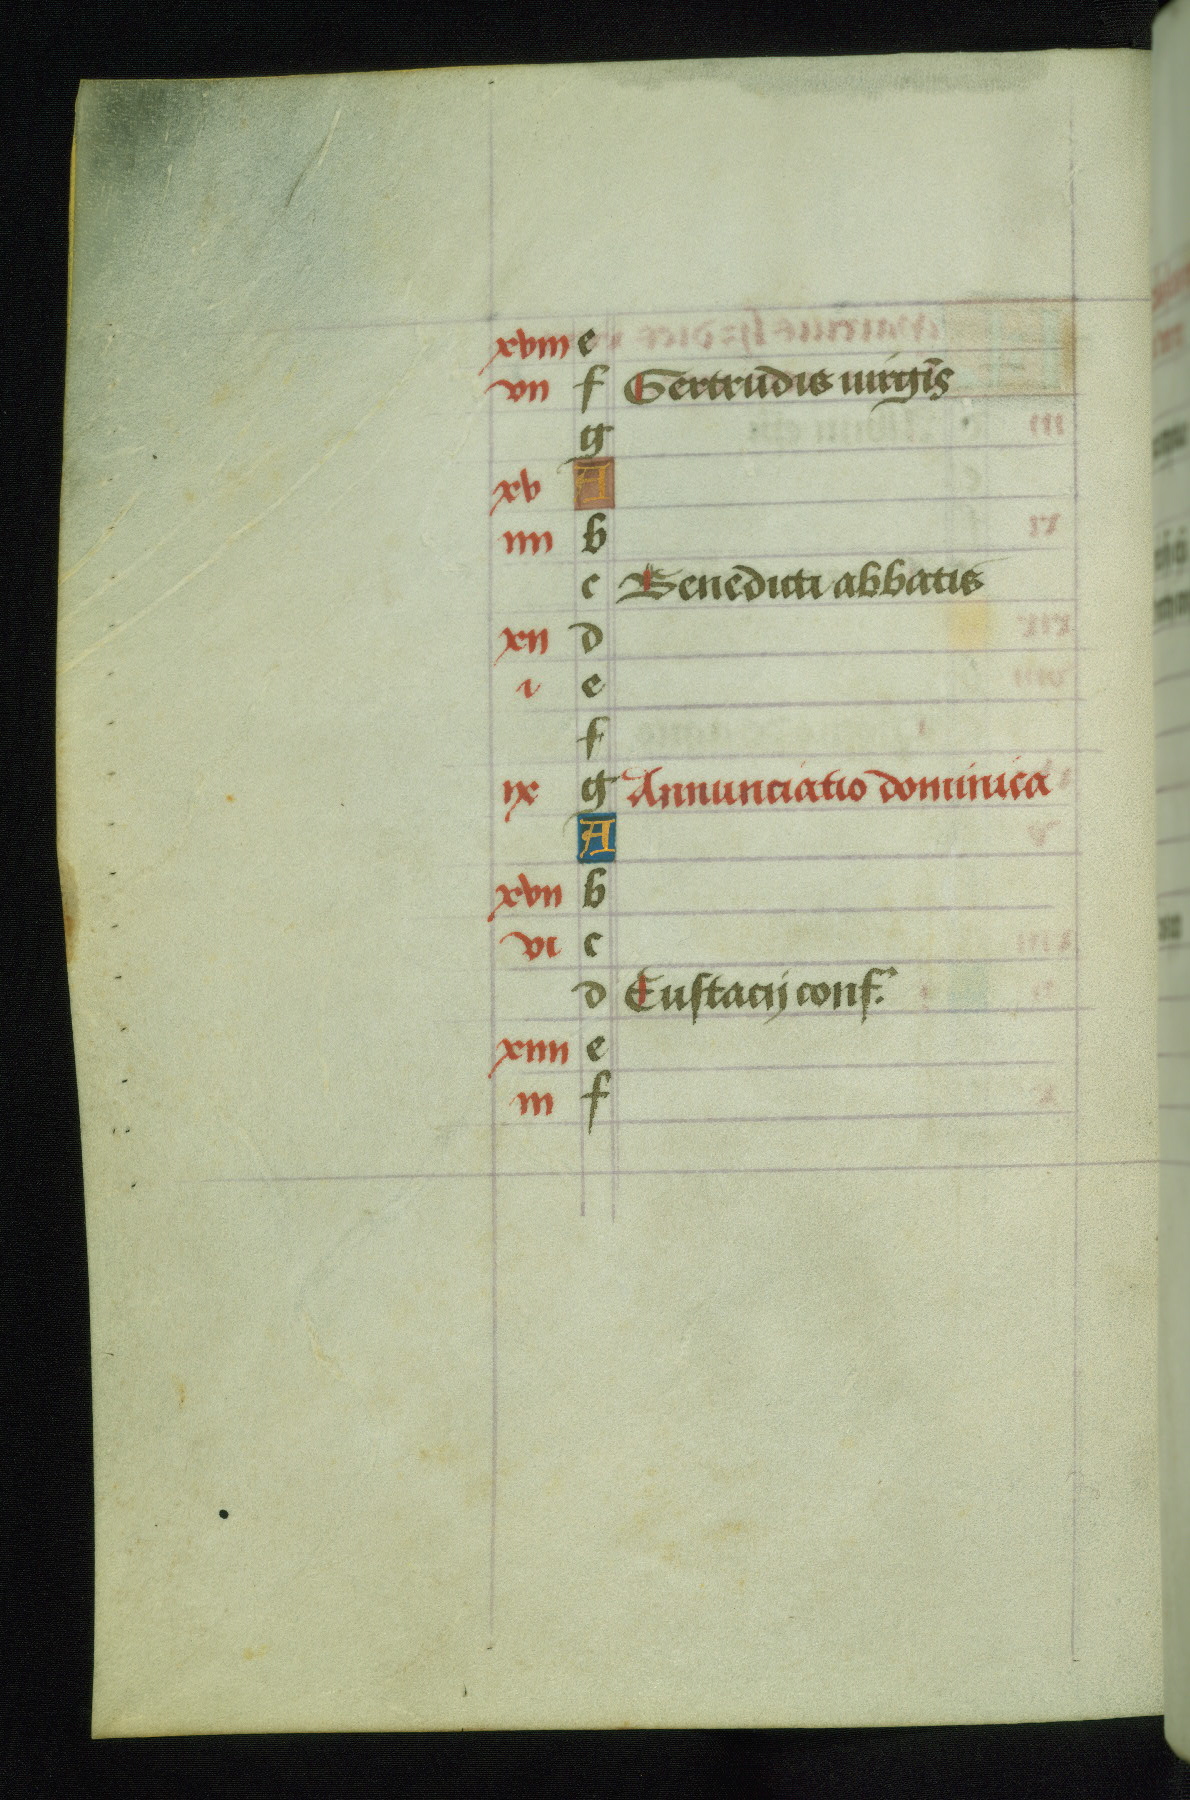 xviii e
vii f Gertrudis uirgis
g
xv A
iiii b
c Benedicti abbatis
xii d
i e
f
ix g Annunciatio dominica
A
xvii b
vi c
d Eustacij conf.
xiiii e
iii f